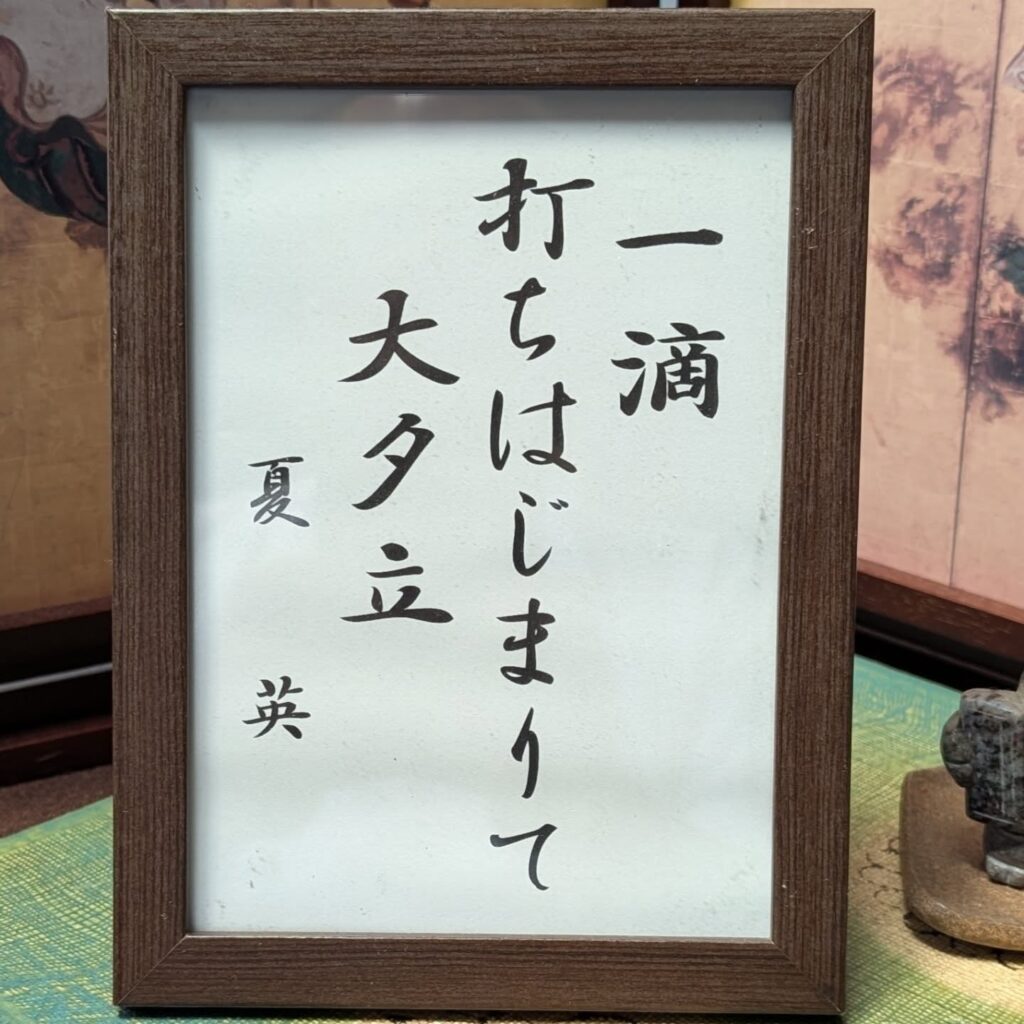 一滴
打ちはじまりて
大夕立
夏英